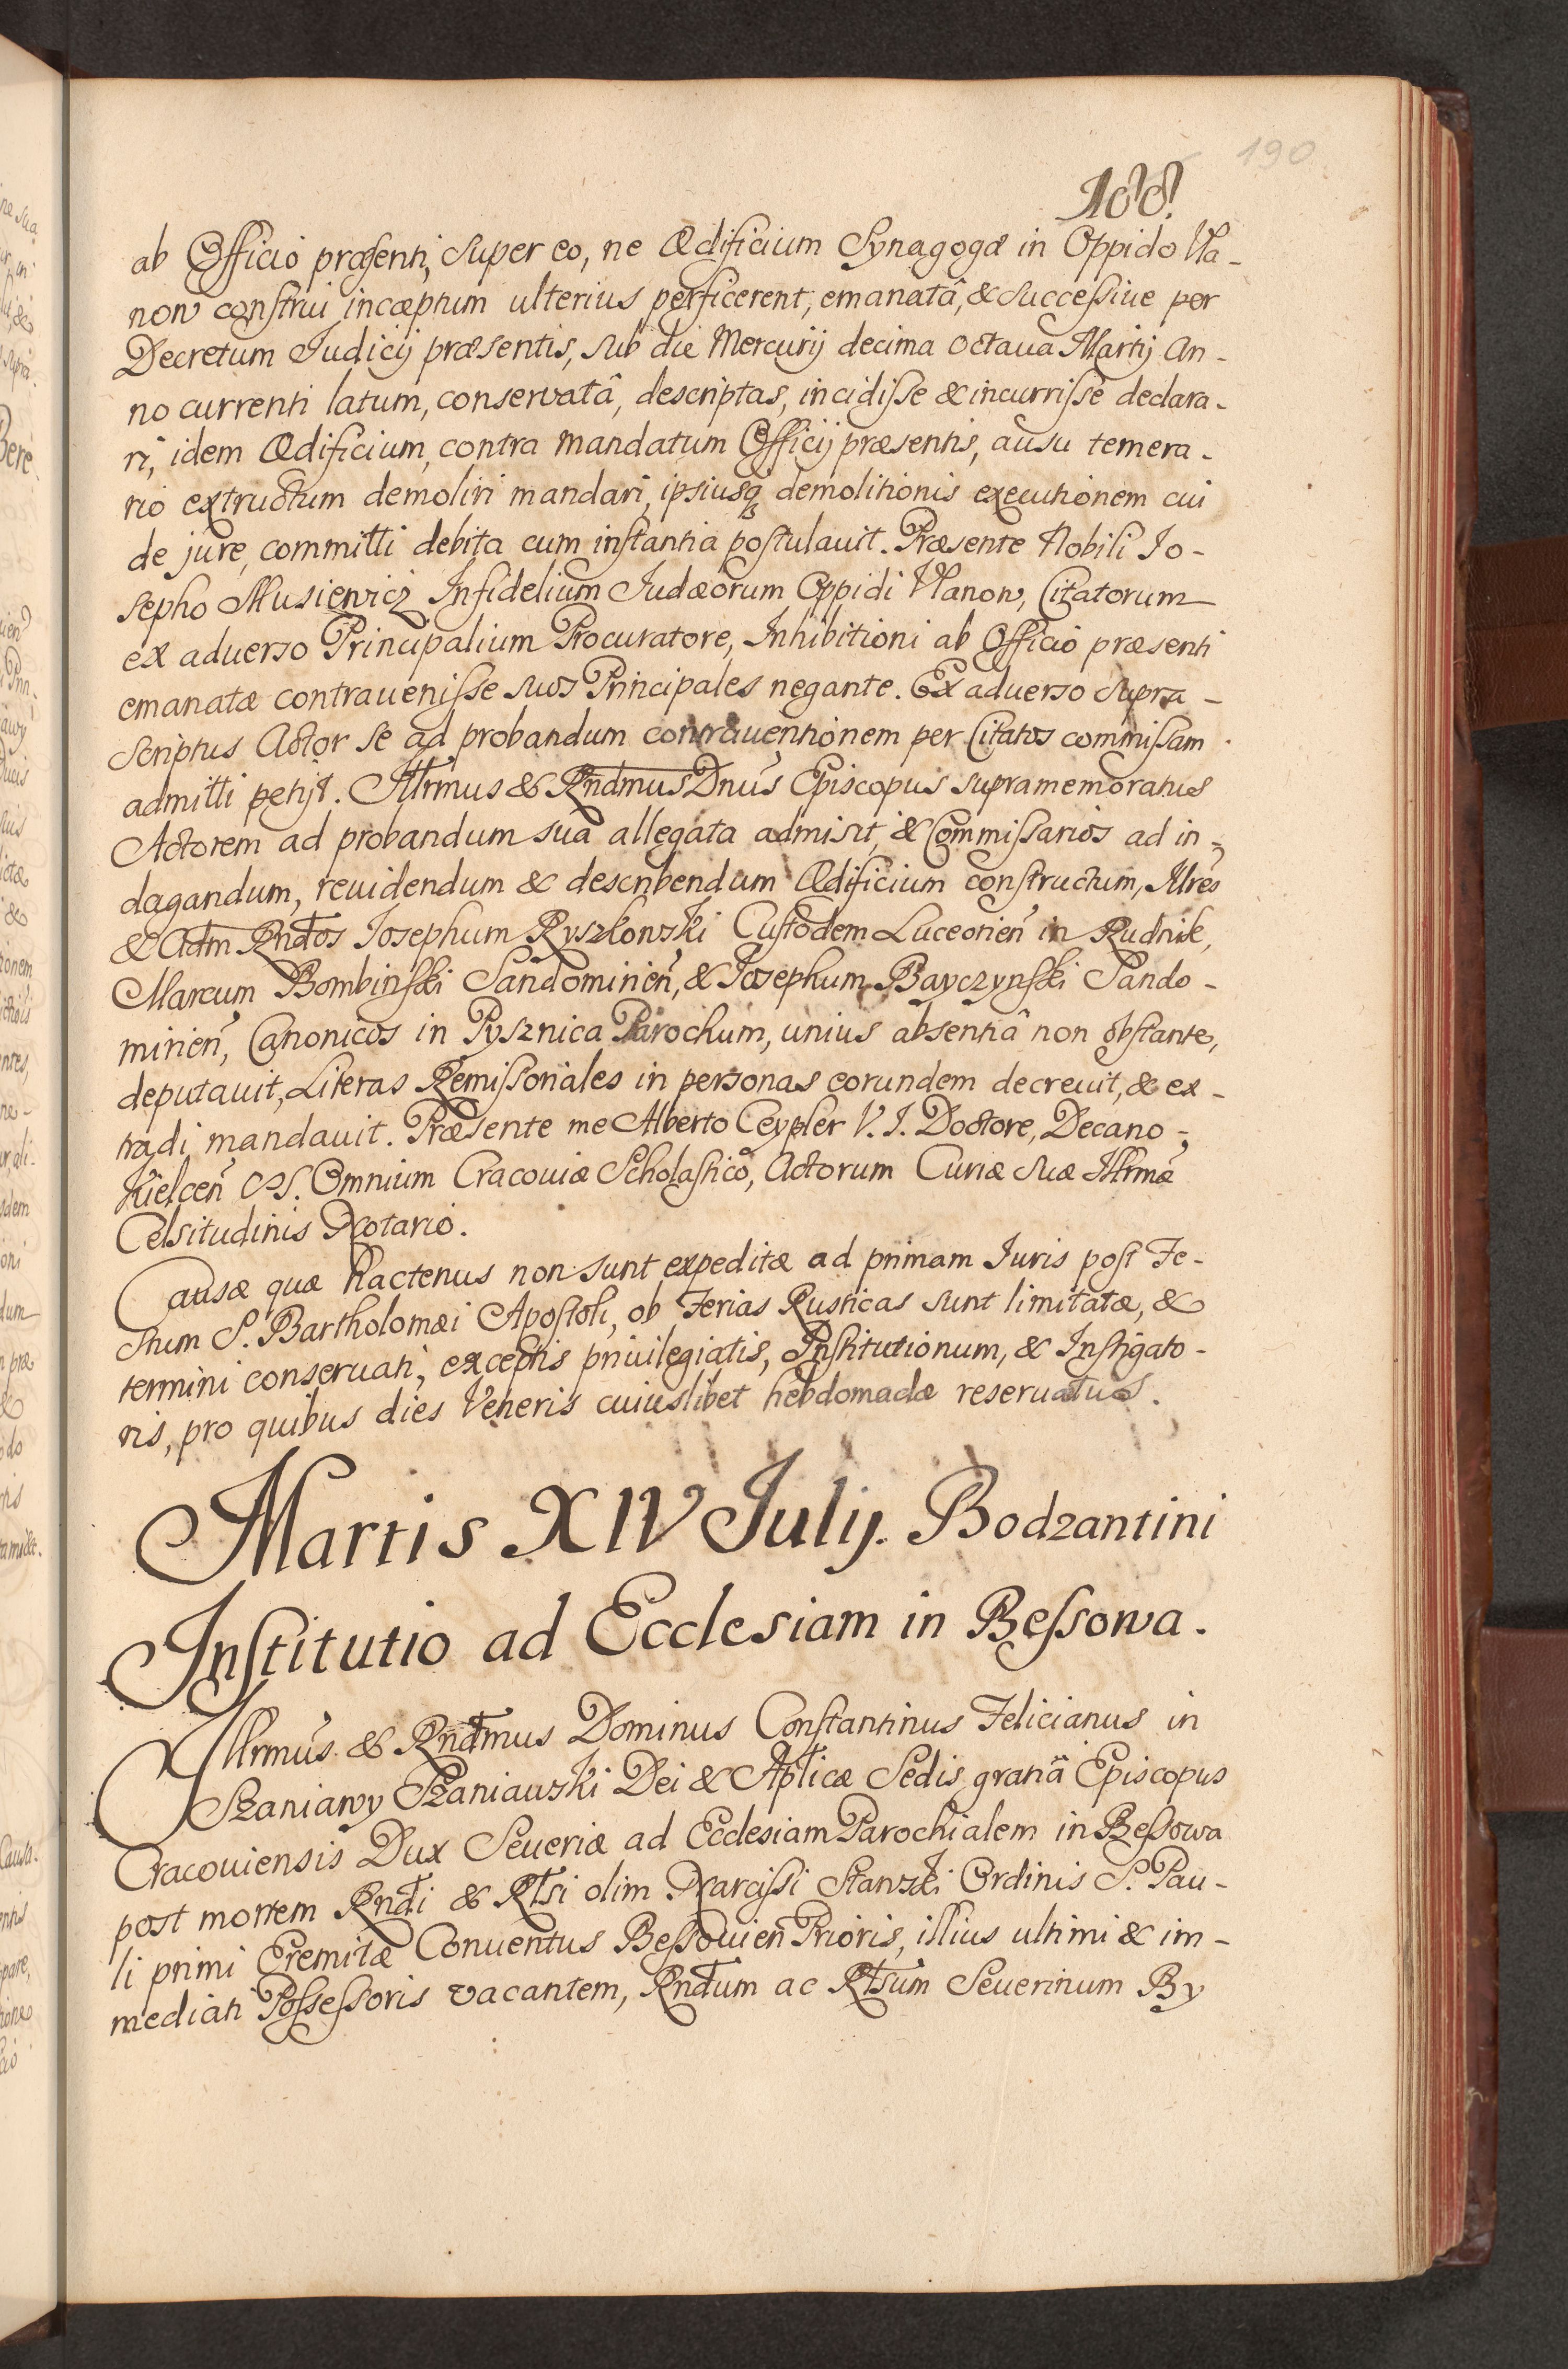 190
188.
ab Officio præsenti, super eo, ne Ædificium Synagogæ in Oppido Vla-
now construi incæptum ulterius perficerent, emanatâ, & successiue per
Decretum Iudicij præsentis, sub die Mercurij decima octaua Martij An-
no currenti latum, conservatâ, descriptas, incidisse & incurrisse declara-
ri, idem Ædificium, contra mandatum Officij præsentis, ausu temera-
rio extructum demoliri mandari, ipsiusq₃ demolitionis executionem cui
de jure, committi debita cum instantia postulauit. Præsente Nobili Io-
sepho Musiewicz Infidelium Iudæorum Oppidi Vlanow, Citatorum
ex aduerso Principalium Procuratore, Inhibitioni ab Officio præsenti
emanatæ contrauenisse suos Principales negante. Ex aduerso supra-
scriptus Actor se ad probandum contrauentionem per Citatos commissam
admitti petijt. Illrmus & Rndmus Dnus Episcopus supramemoratus
Actorem ad probandum sua allegata admisit, & Commissarios ad in-
dagandum, reuidendum & describendum Ædificium constructum, Illres
& Adm Rndos Iosephum Ryszkowski Custodem Luceorien in Rudnik,
Marcum Bombinski Sandomirien, & Iosephum Bayczynski Sando-
mirien, Canonicos in Pysznica Parochum, unius absentiâ non obstante,
deputauit, Literas Remissoriales in personas eorundem decreuit, & ex-
tradi mandauit. Præsente me Alberto Ceypler V. I. Doctore, Decano-
Kielcen SS. Omnium Cracouiæ Scholastico, Actorum Curiæ suæ Illrmæ
Celsitudinis Notario.
Causæ quæ hactenus non sunt expeditæ ad primam Iuris post Fe-
stum S. Bartholomæi Apostoli, ob Ferias Rusticas sunt limitatæ, &
termini conseruati, exceptis priuilegiatis, Institutionum, & Instigato-
ris, pro quibus dies Veneris cuiuslibet hebdomadæ reseruatus.
Martis XIV Iulij. Bodzantini
Institutio ad Ecclesiam in Bessowa.
Illrmus & Rndmus Dominus Constantinus Felicianus in
Szaniawy Szaniawski Dei & Aplicæ Sedis gratiâ Episcopus
Cracouiensis Dux Seueriæ ad Ecclesiam Parochialem in Bessowa
post mortem Rndi & Rlsi olim Narcissi Stanski Ordinis S. Pau-
li primi Eremitæ Conuentus Bessouien Prioris, illius ultimi & im-
mediati Possessoris vacantem, Rndum ac Rlsum Seuerinum By